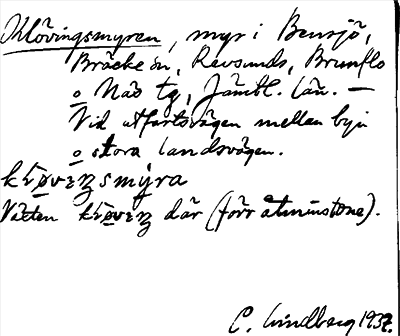 Klövingsmyren, myr i Bensjö,
Bräcke sn, Revsunds, Brunflo
o Näs tg, Jämtl. län. —
Vid utfartsvägen mellan byn
o stora landsvägen.
myra
Vätten där (förr åtminstone).
C. Lindberg 1937.